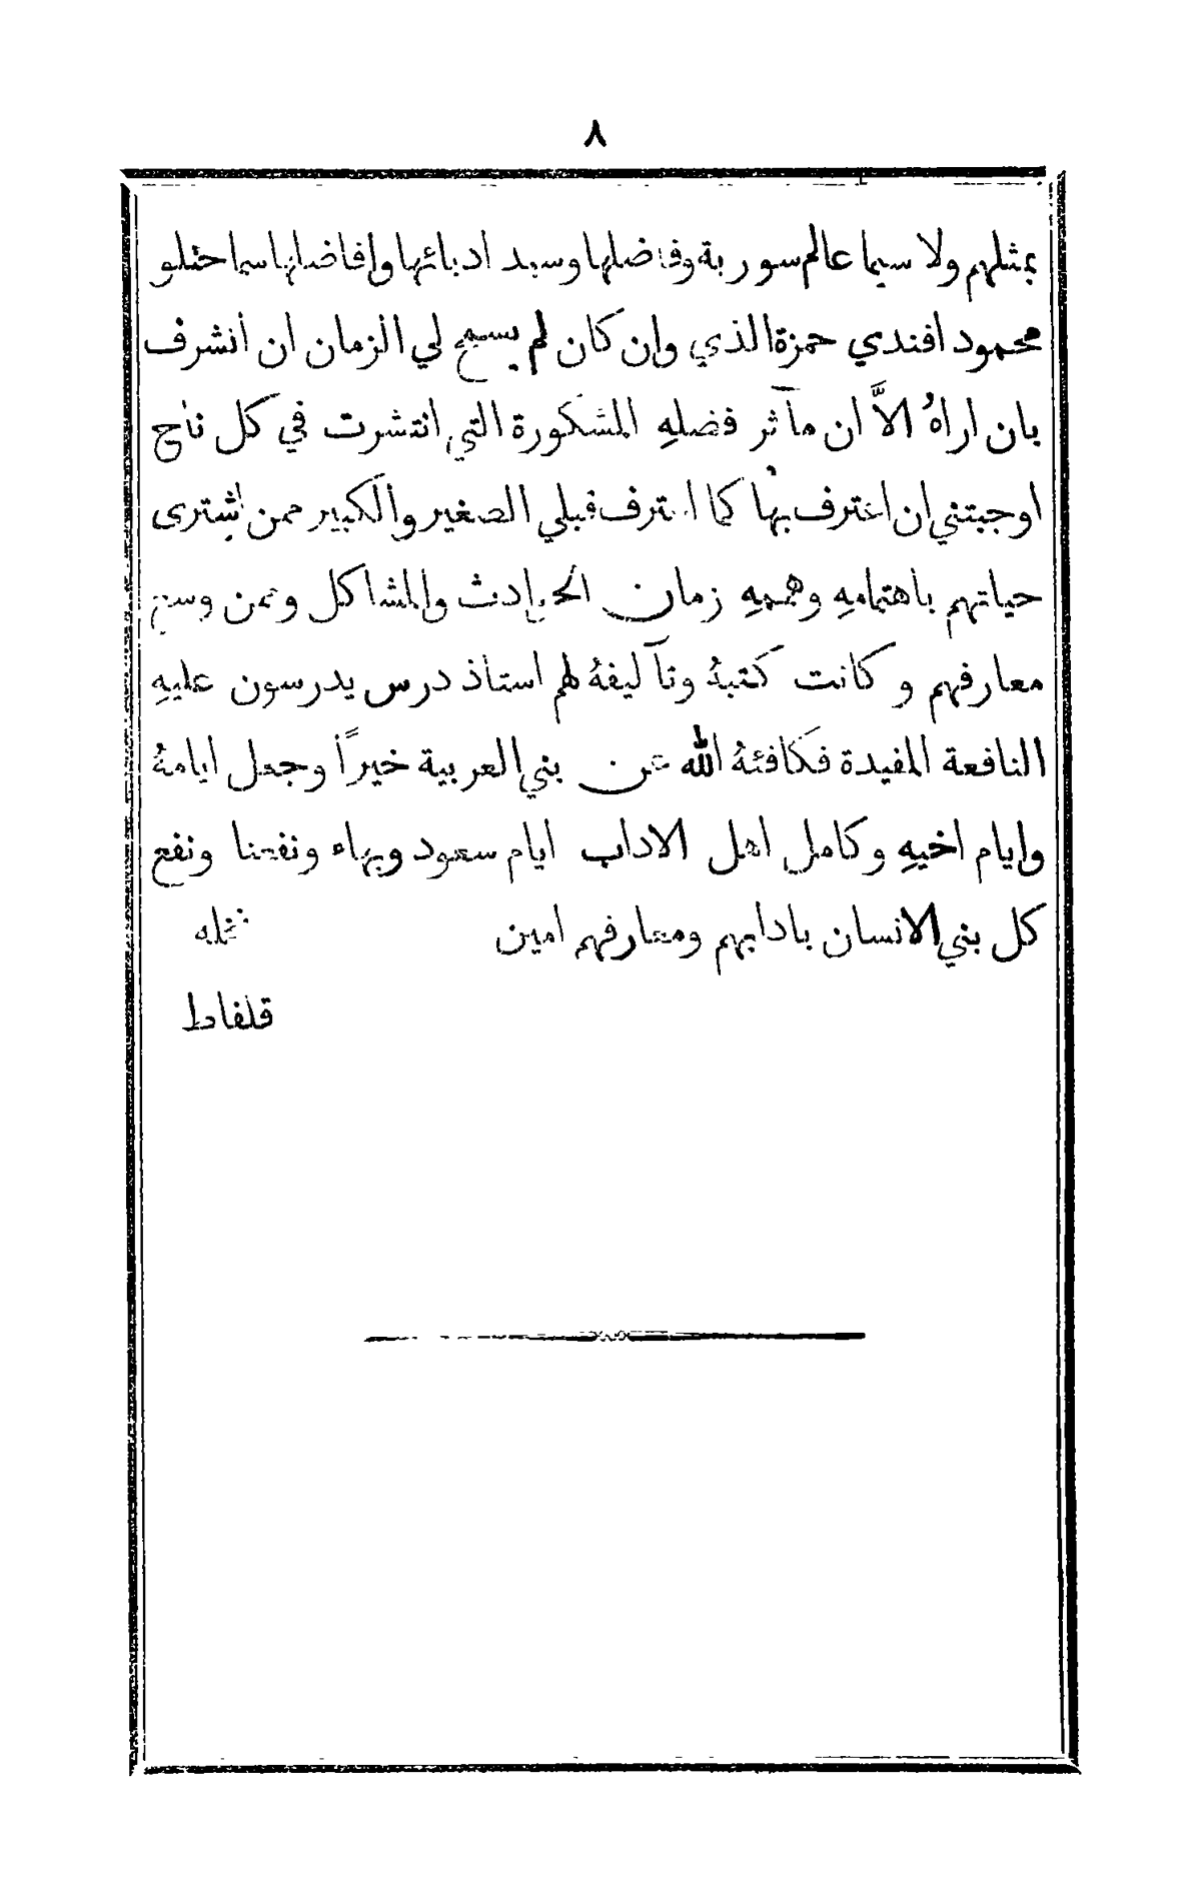 ٨
بمثلهم ولا سيما عالم سورية وفاضلها وسيد ادبائها وافاضلها سماحتلو
محمود افندي حمزة الذي وان كان لم يسمح لي الزمان ان اتشرف
بان اراهُ الاَّ ان مآثر فضلهِ المشكورة التي انتشرت في كل ناحٍ
اوجبتني ان اعترف بها كما اعترف قبلي الصغير والكبير ممن اشترى
حياتهم باهتمامهِ وهممهِ زمان الحوادث والمشاكل وممن وسع
معارفهم وكانت كتبهُ وتآليفهُ لهم استاذ درس يدرسون عليهِ
النافعة المفيدة فكافئهُ الله عن بني العربية خيراً وجعل ايامهُ
وايام اخيهِ وكامل اهل الاداب ايام سعود وبهاء ونفعنا ونفع
كل بني الانسان بادابهم ومعارفهم امين نخله
قلفاط